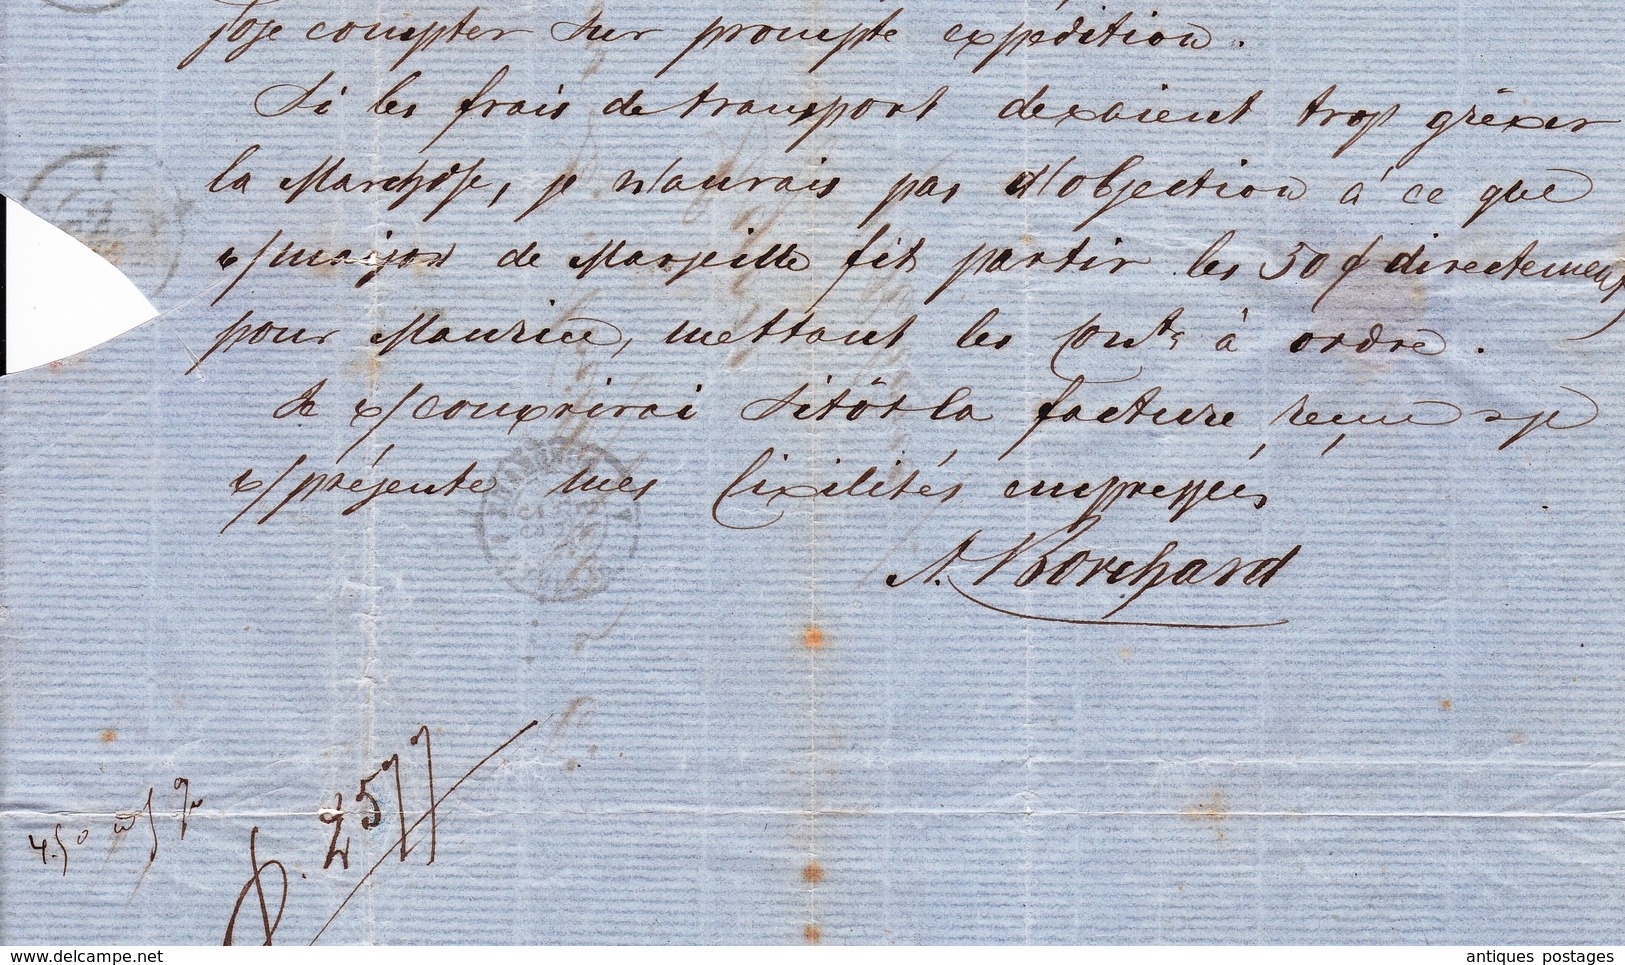 J'ose compter sur prompte expédition.
Si les frais de transport devaient trop grèver
la Marchdse, je n'aurais pas d'objection à ce que
v/maison de Marseille fit partir les 50 f directement
pour Maurice, mettant les Conts à ordre.
Je v/couvrirai sitôt la facture reçue & je
v/présente mes Civilités empressées
A. Borchard
delcampe.net
antiques postages